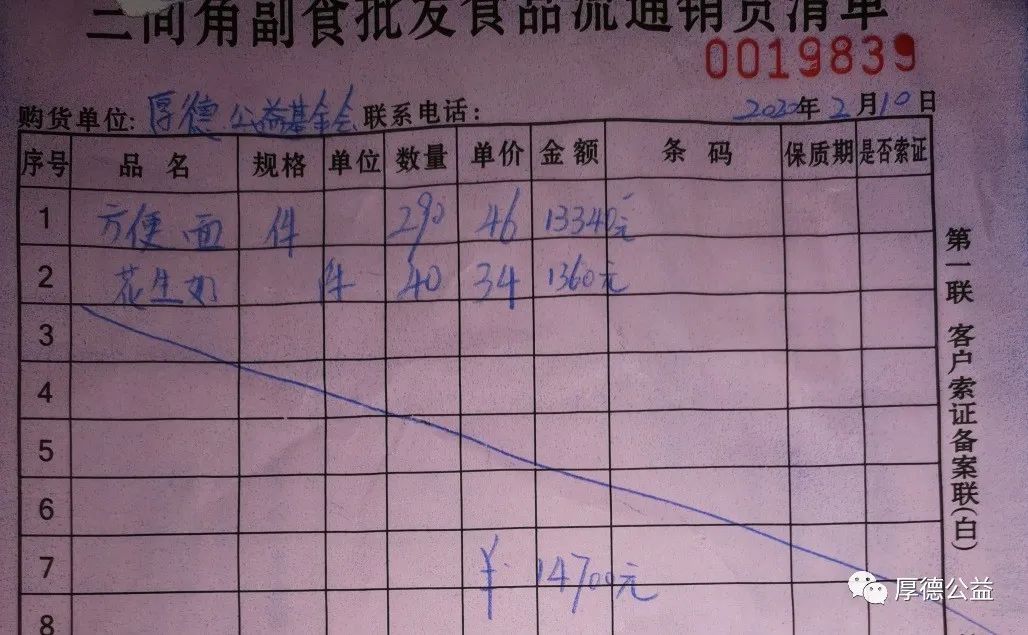 三问角副食批发食品流通销货清单
0019839
购货单位: 厚德公益基金会 联系电话: 2020年2月10日
序号 品名 规格 单位 数量 单价 金额 条码 保质期 是否索证
1 方便面 件 290 46 13340元
2 花生奶 件 40 34 1360元
3
4
5
6
7 ¥ 14700元
8
第一联 客户索证备案联(白)
厚德公益